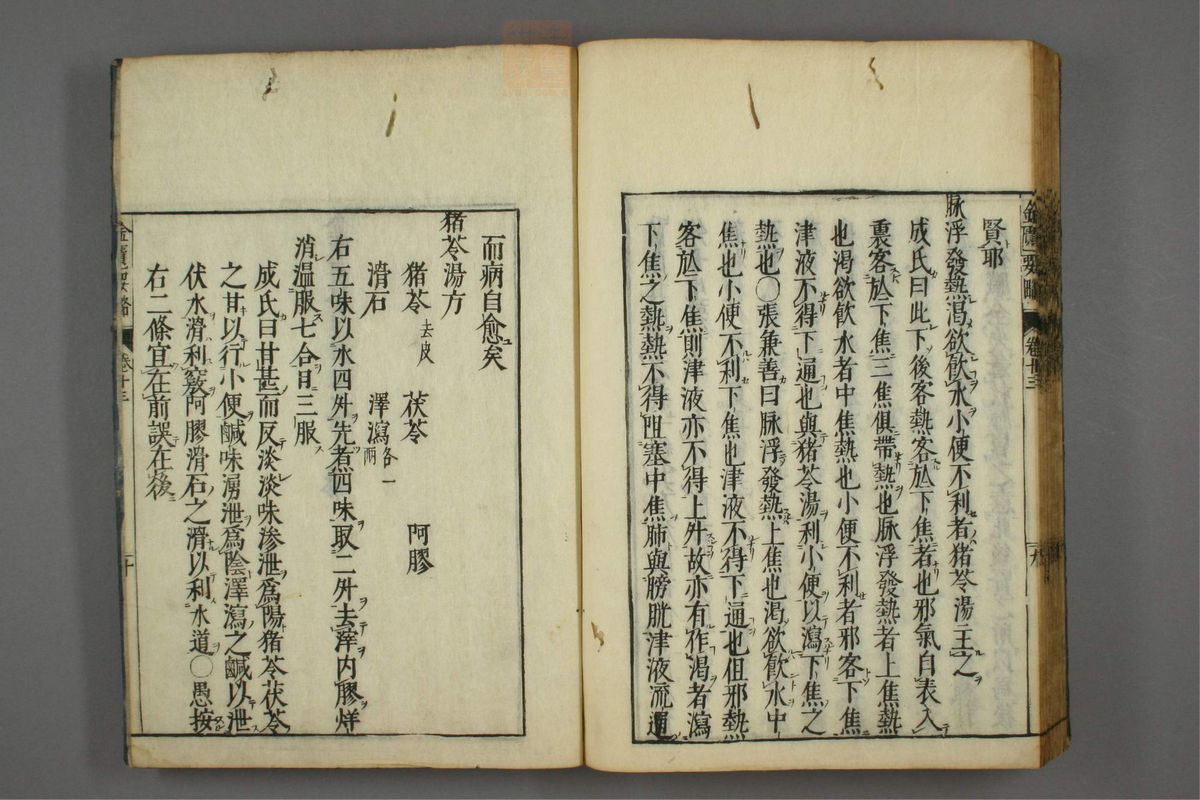 賢耶
脉浮發熱渇欲飮水小便不利者猪苓湯主之
成氏曰此下後客熱客於下焦者也邪氣自表入
裏客於下焦三焦俱帶熱也脉浮發熱者上焦熱
也渇欲飮水者中焦熱也小便不利者邪客下焦
津液不得下通也與猪苓湯利小便以瀉下焦之
熱也〇張兼善曰脉浮發熱上焦也渇欲飮水中
焦也小便不利下焦也津液不得下通也但邪熱
客於下焦則津液亦不得上升故亦有作渇者瀉
下焦之熱熱不得阻塞中焦肺與膀胱津液流通
金匱要略
卷十三
而病自愈矣
猪苓湯方
猪苓去皮 茯苓 阿膠
滑石 澤瀉各一兩
右五味以水四升先煮四味取二升去滓内膠烊
消温服七合日三服
成氏曰甘甚而反淡淡味滲泄爲陽猪苓茯苓
之甘以行小便鹹味涌泄爲陰澤瀉之鹹以泄
伏水滑利竅阿膠滑石之滑以利水道〇愚按
右二條宜在前誤在後
金匱要略
卷十三
二十